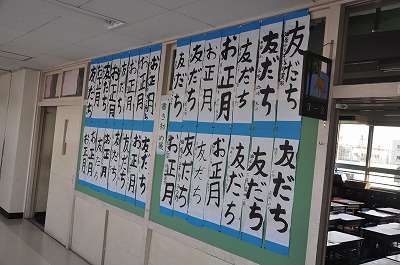 友だち
友だち
お正月
お正月
お正月
お正月
友だち
友だち
お正月
お正月
書き初め展
友だち
友だち
お正月
お正月
お正月
友だち
友だち
お正月
お正月
友だち
お正月
友だち
友だち
友だち